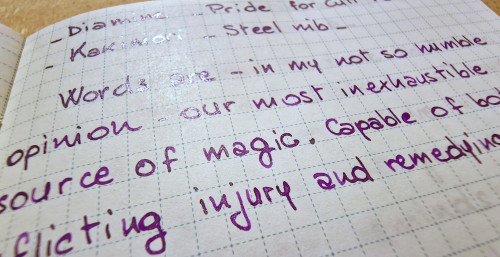 - Diamine - Pride for
- Kakimori - Steel nib -
Words are - in my not so humble
opinion - our most inexhaustible
source of magic. Capable of
flicting injury and remedying